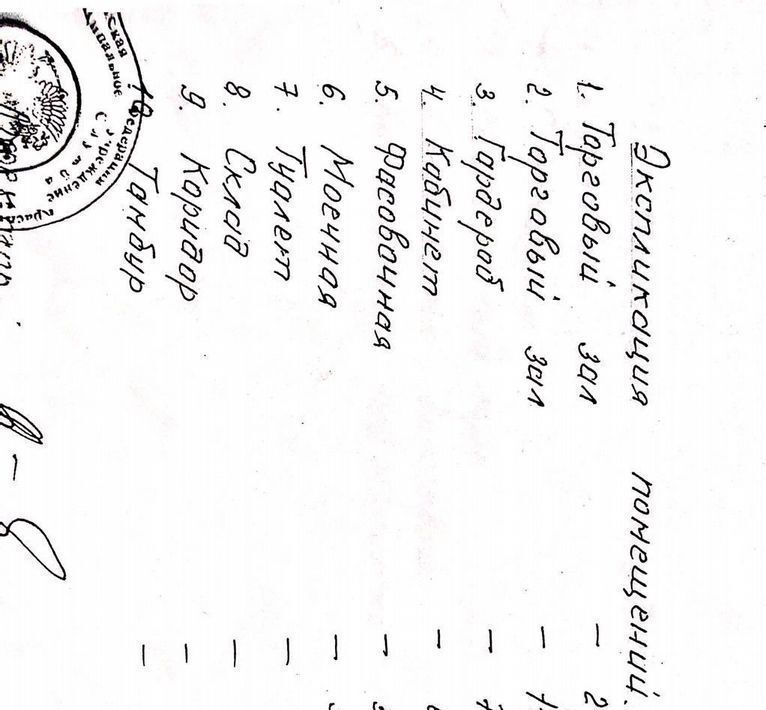 Экспликация помещений.
1. Торговый зал – 2
2. Торговый зал – 1
3. Гардероб – 7
4. Кабинет –
5. Фасовочная –
6. Моечная –
7. Туалет –
8. Склад –
9. Коридор –
10 Тамбур –
Федерации
Учреждение